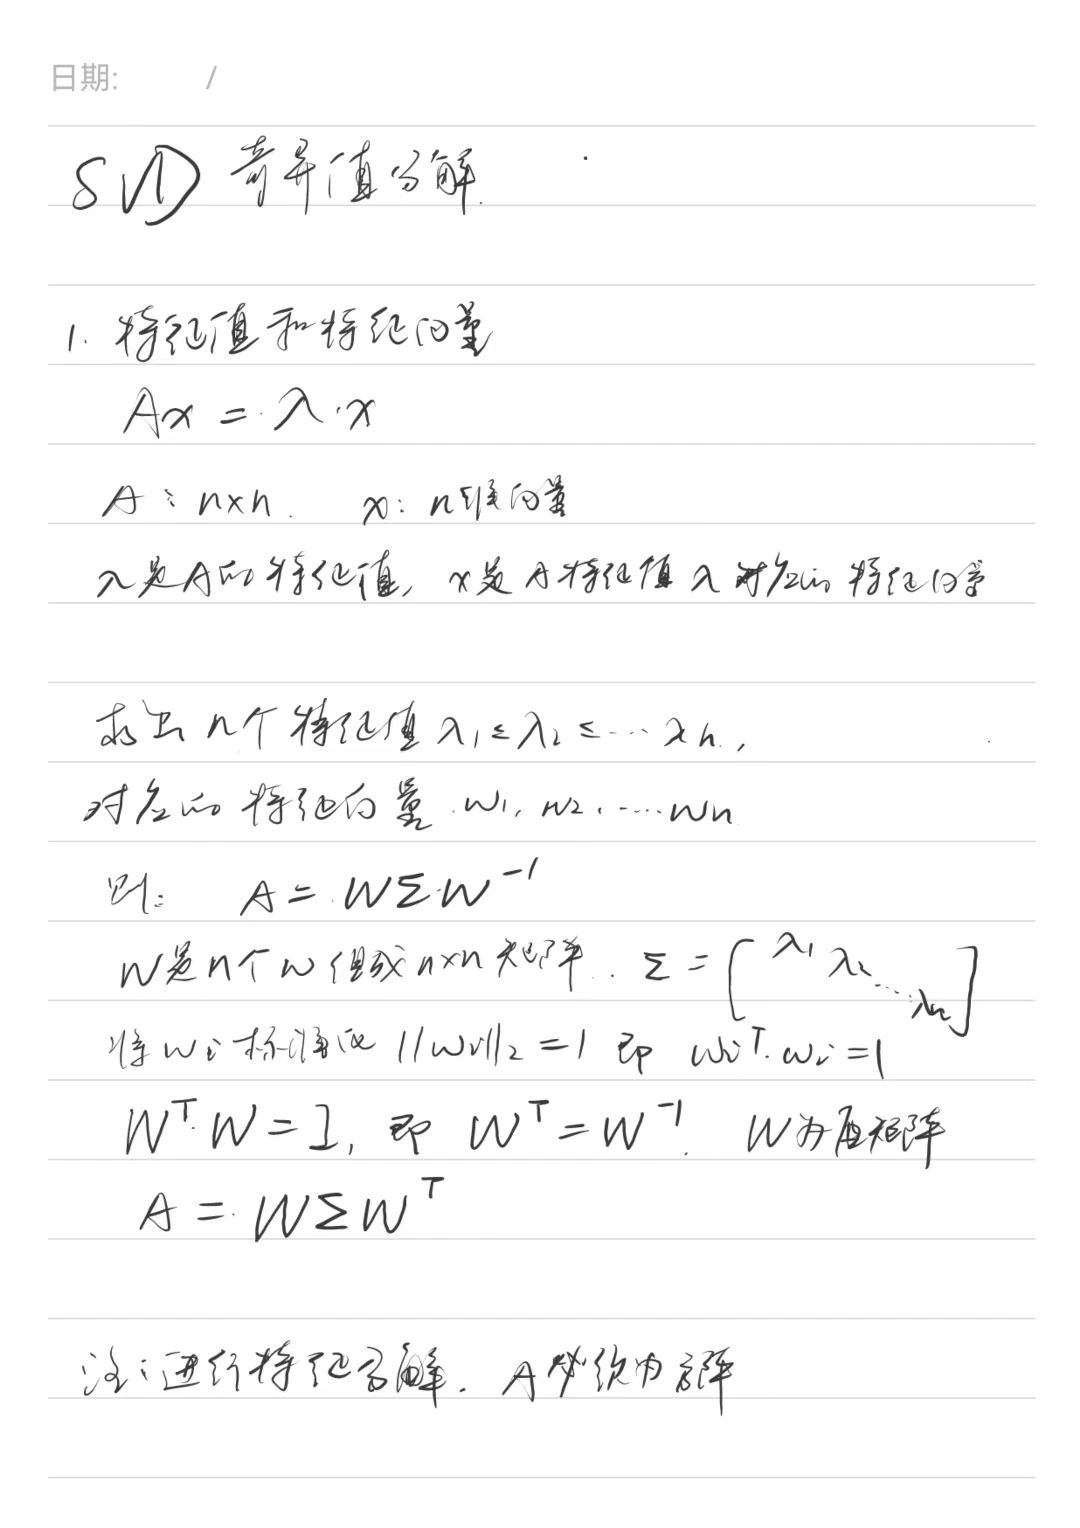 日期: /
SVD 奇异值分解.
1. 特征值和特征向量
Ax = λ·x
A: n×n. x: n维向量
λ是A的特征值, x是A特征值λ对应的特征向量
求出n个特征值λ1≤λ2≤…λn,
对应的特征向量 w1, w2, …wn
则: A = WΣW⁻¹
W是n个w组成n×n矩阵. Σ = [λ1 λ2 … λn]
将wi标准化 ||wi||₂ = 1 即 wiᵀ·wi = 1
Wᵀ·W = I, 即 Wᵀ = W⁻¹. W为酉矩阵
A = WΣWᵀ
注: 进行特征分解. A必须为方阵